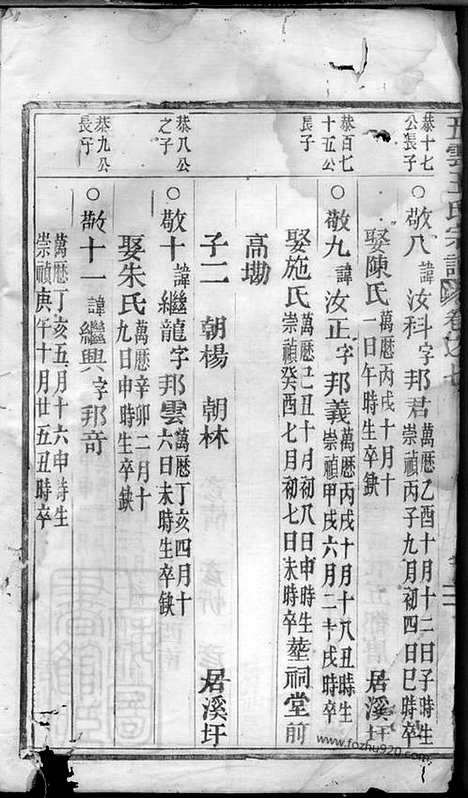 五雲王氏宗譜 卷之七
恭十七
公長子
○敬八 諱汝科字邦君 萬曆乙酉十月十二日子時生
崇禎丙子九月初四日巳時卒
娶陳氏 萬曆丙戌十月十
一日午時生卒缺
居溪圩
恭百七
十五公
長子
○敬九 諱汝正字邦義 萬曆丙戌十月十八丑時生
崇禎甲戌六月二十戌時卒
娶施氏 萬曆己丑十月初八日申時生
崇禎癸酉七月初七日未時卒 塟祠堂前
高墈
子二 朝楊 朝林
居溪圩
恭八公
之子
○敬十 諱繼龍字邦雲 萬曆丁亥四月十
六日未時生卒缺
娶朱氏 萬曆辛卯二月十
九日申時生卒缺
恭九公
長子
○敬十一 諱繼興字邦奇
萬曆丁亥五月十六申時生
崇禎庚午十月廿五丑時卒
www.fozhu920.com